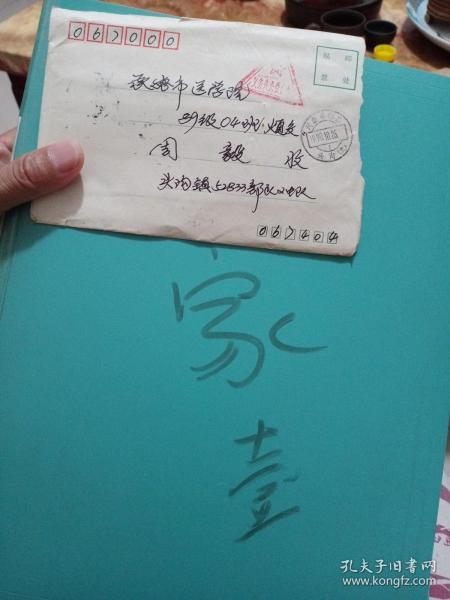 067000
贴 邮
票 处
承德市医学院
91级04班 烦交
周 毅 收
头沟镇52833部队
067404
家
壹
孔夫子旧书网
www.kongfz.com